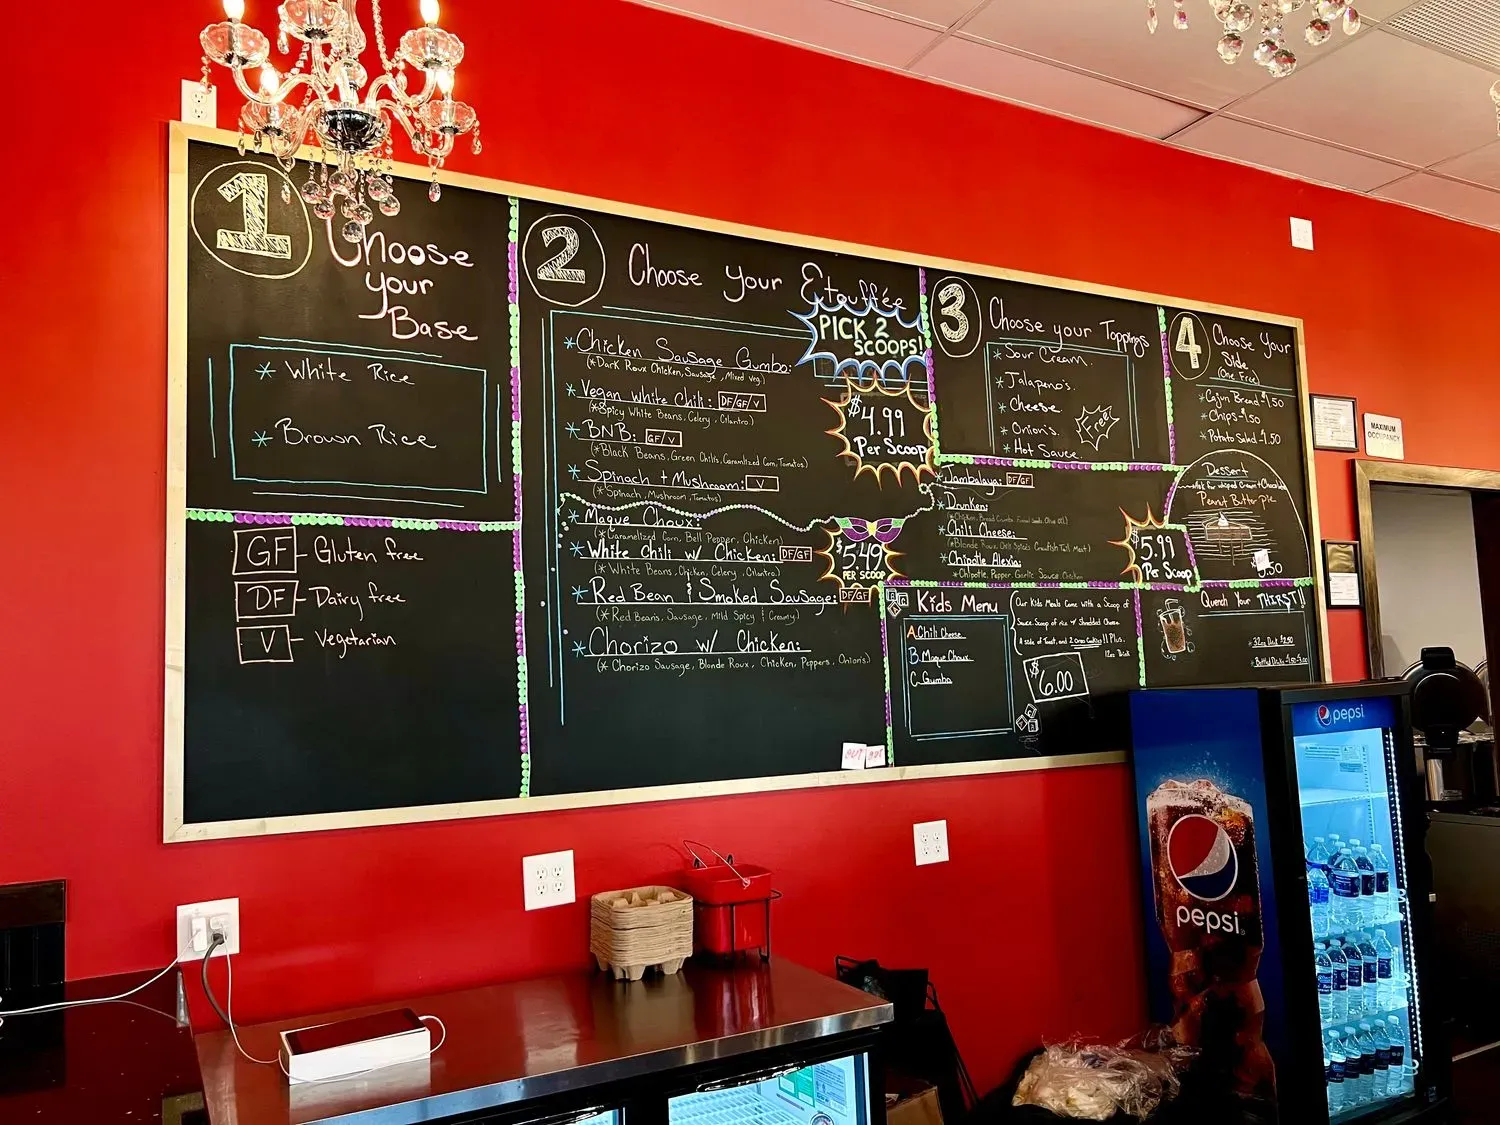 1
Choose
your
Base
* White Rice
* Brown Rice
GF - Gluten free
DF - Dairy free
V - Vegetarian
2
Choose your Etouffée
PICK 2
SCOOPS!
* Chicken Sausage Gumbo:
(* Dark Roux Chicken, Sausage, Mixed Veg.)
* Vegan White Chili: DF/GF/V
(* Spicy White Beans, Celery, Cilantro.)
* BNB: GF/V
(* Black Beans, Green Chilis, Caramlized Corn, Tomatos)
* Spinach + Mushroom: V
(* Spinach, Mushroom, Tomatos)
$4.99
Per Scoop
* Maque Choux:
(* Caramelized Corn, Bell Pepper, Chicken)
* White Chili w/ Chicken: DF/GF
(* White Beans, Chicken, Celery, Cilantro.)
* Red Bean & Smoked Sausage: DF/GF
(* Red Beans, Sausage, Mild Spicy & Creamy)
* Chorizo w/ Chicken:
(* Chorizo Sausage, Blonde Roux, Chicken, Peppers, Onion's)
$5.49
PER SCOOP
3
Choose your Toppings
* Sour Cream
* Jalapeno's.
* Cheese
* Onion's.
* Hot Sauce.
Free!
* Jambalaya: DF/GF
* Drunken:
* Chili Cheese:
* Chipotle Alexia:
* Chipotle, Pepper, Garlic Sauce, Chicken
$5.99
Per Scoop
4
Choose Your
Side
(One Free)
* Cajun Bread - 1.50
* Chips - 1.50
* Potato Salad - 1.50
Dessert
Peanut Butter pie
Kids Menu
A. Chili Cheese
B. Maque Choux
C. Gumbo
Our Kids Meals Come with a Scoop of
Sauce, Scoop of rice & Shredded Cheese
A side of Toast, and 2 Oreo Cookies!! Plus.
12oz Drink
$6.00
Quench Your THIRST!!
MAXIMUM
OCCUPANCY
pepsi
pepsi